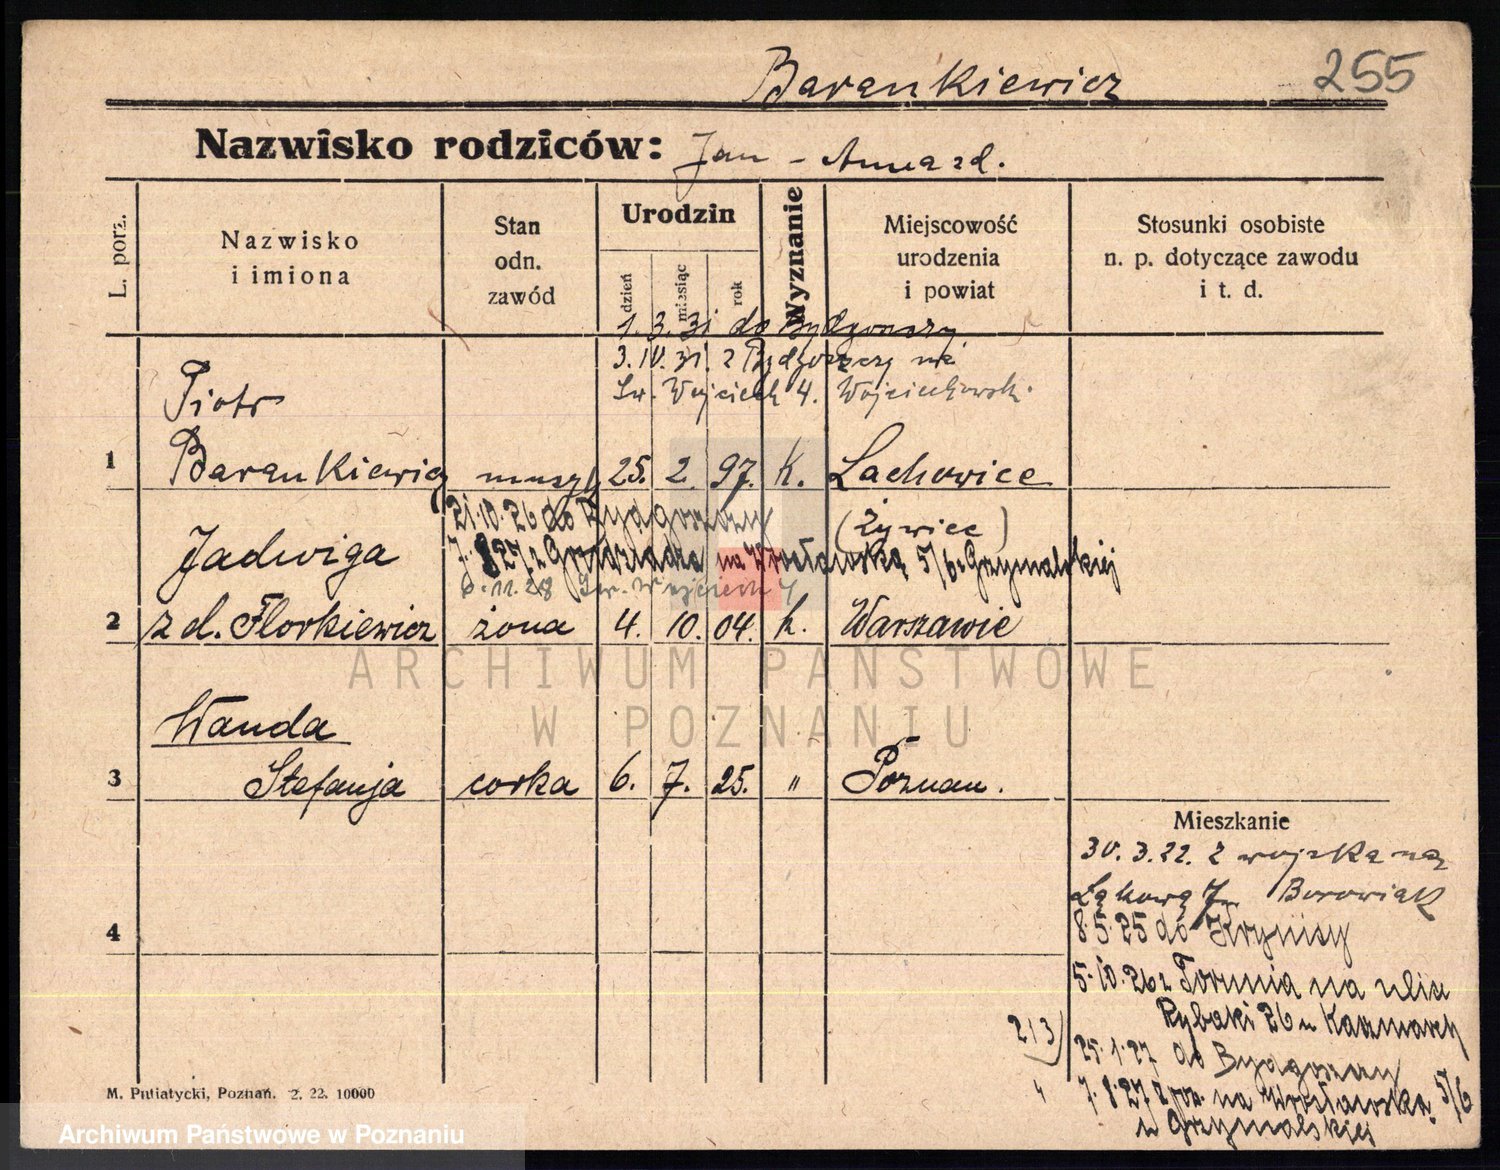 Barankiewicz
255
Nazwisko rodziców: Jan - Anna zd.
L. porz.
Nazwisko
i imiona
Stan
odn.
zawód
Urodzin
dzień
miesiąc
rok
Wyznanie
Miejscowość
urodzenia
i powiat
Stosunki osobiste
n. p. dotyczące zawodu
i t. d.
1. 3. 31 do Bydgoszczy
3. IV. 31. z Bydgoszczy na
Św. Wojciech 4. Wojciechowski.
Piotr
1 Barankiewicz 25. 2. 97. K. Lachowice
21.10.26 do Bydgoszczy (Żywiec)
Jadwiga 7. 8 27 z Grudziądza na Wrocławską 5/6 Grzymalskiej
6.11.28 Św. Wojciech 4
2 zd. Florkiewicz żona 4. 10. 04. k. Warszawie
ARCHIWUM PAŃSTWOWE
W POZNANIU
Wanda
3 Stefanja corka 6. 7. 25. " Poznań.
Mieszkanie
30. 3. 22. z wojska na
Łąkową Borowiak
4
8.5.25 do Krynisy
5.10.26 z Torunia na ulicę
Rybaki 26 u Kaczmarek
213
25.1.27 do Bydgoszczy
7.8.27 z na Wrocławską 5/6
u Grzymalskiej
M. Putiatycki, Poznań. 2. 22. 10000
Archiwum Państwowe w Poznaniu